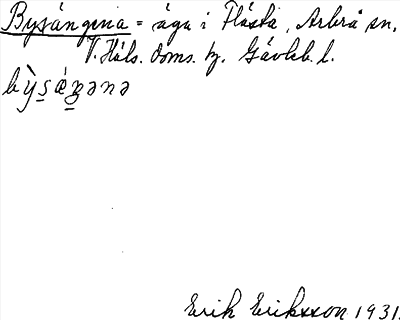 Bysångerna = äga i Flästa, Arbrå sn,
V. Häls. doms. hg. Gävleb. l.
Erik Eriksson 1931.